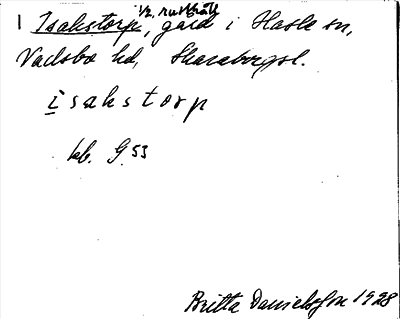 1 Isakstorp, 1/2, rusthåll gård i Hasle sn,
Vadsbo hd, Skaraborgsl.
isakstorp
kb. G 53
Britta Danielsson 1928